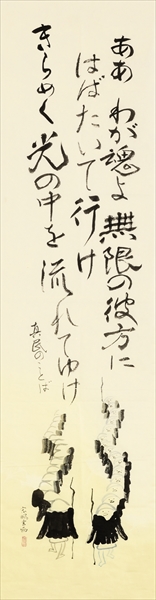 ああ わが魂よ 無限の彼方に
はばたいて行け
きらめく光の中を流れてゆけ
真民のことば